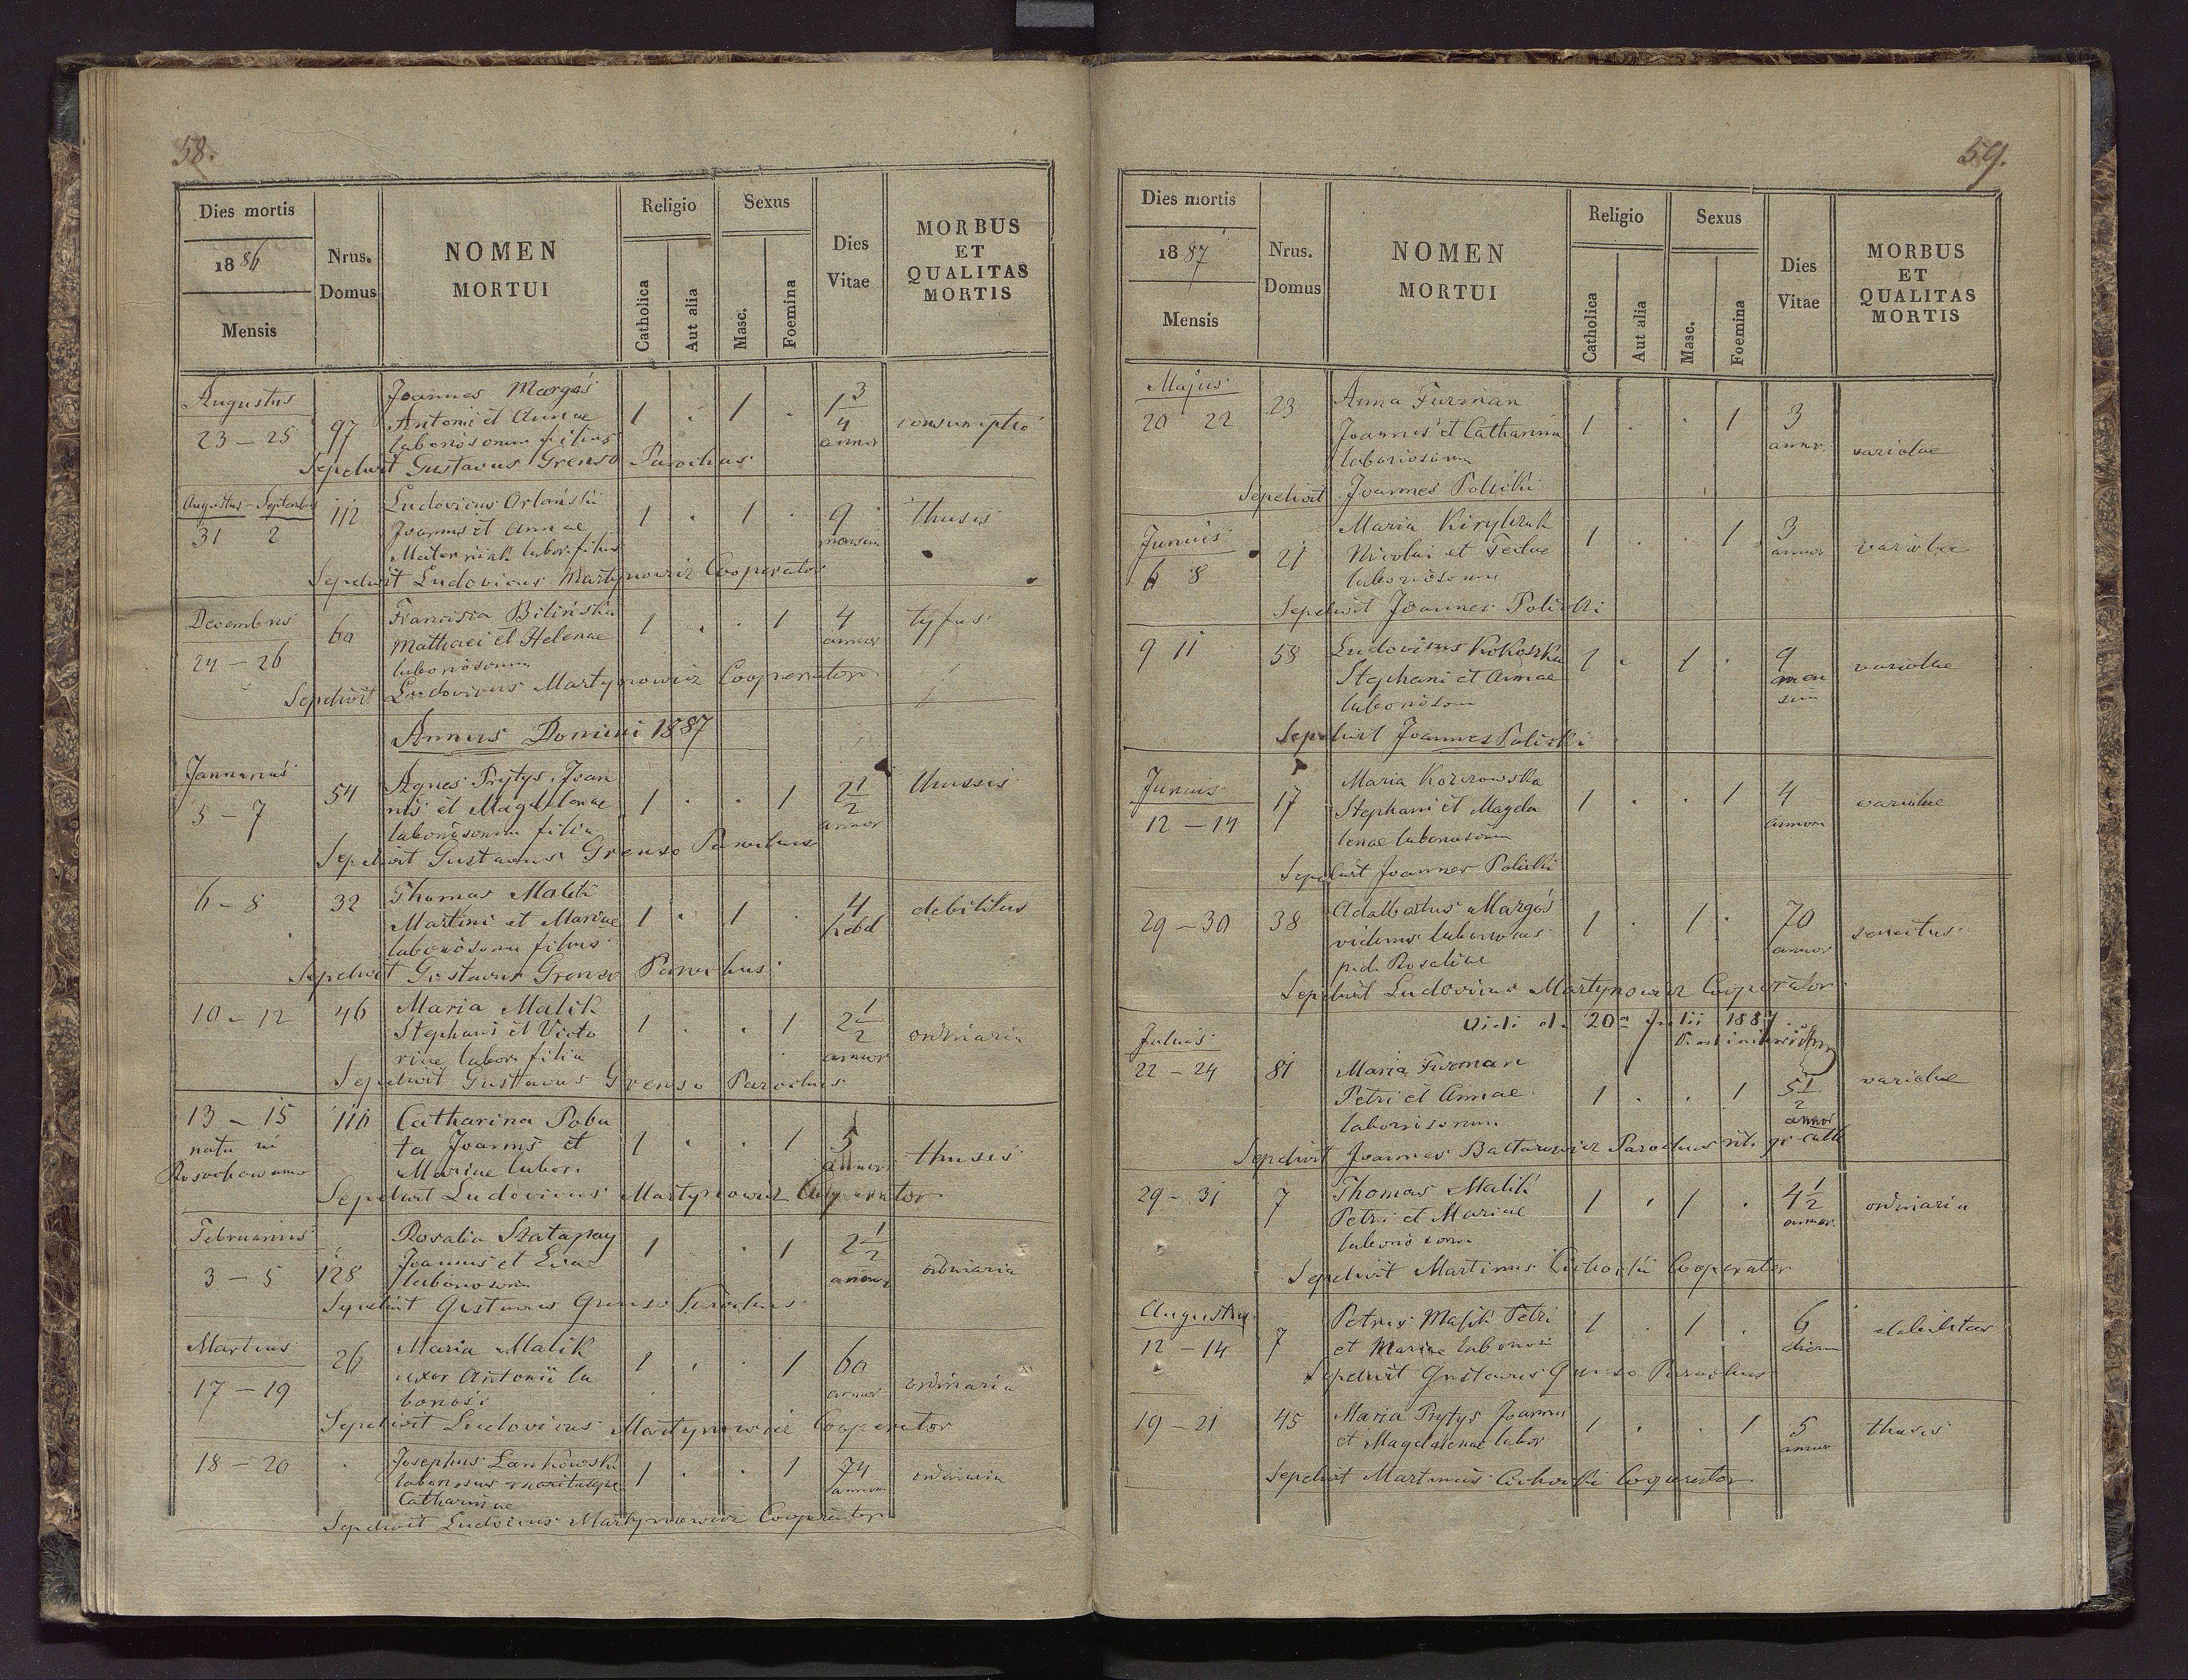 58.
Dies mortis
1886
Mensis
Nrus. Domus
NOMEN MORTUI
Religio
Catholica
Aut alia
Sexus
Masc.
Foemina
Dies Vitae
MORBUS ET QUALITAS MORTIS
Augustus
Joannes Margaś
23 – 25 97 Antoni et Annae 1 . 1 . 1 3/4 consumptio
laboriosorum filius annor
Sepelivit Gustavus Grenso Parochus
Augustus – Septembris
112 Ludovicus Orlański 1 . 1 . 9 thusis
31 2 Joannis et Annae mensium
labor. filius
Sepelivit Ludovicus Martynowicz Cooperator
Decembris
60 Francisca Bilińska 1 . . 1 4 tyfus
24 – 26 Mathaei et Helenae annor
laboriosorum
Sepelivit Ludovicus Martynowicz Cooperator
Annus Domini 1887
Januarius
54 Agnes Prytys, Joan 1 . . 1 2 1/2 thussis
5 – 7 nis et Magdalenae annor
laboriosorum filia
Sepelivit Gustavus Grenso Parochus
6 – 8 32 Thomas Malik 4 debilitas
Martini et Mariae 1 . 1 . hebd
laboriosorum filius
Sepelivit Gustavus Grenso Parochus
10 – 12 46 Maria Malik
Stephani et Victo 1 . . 1 2 1/2 ordinaria
riae labor. filia annor
Sepelivit Gustavus Grenso Parochus
13 – 15 110 Catharina Pobu
natu in ta Joannis et 1 . . 1 5 thusis
Mariae labor. annor
Sepelivit Ludovicus Martynowicz Cooperator
Februarius
Rosalia Szatapay 1 . 1 2 1/2
3 – 5 128 Joannis et Evae annor ordinaria
laboriosorum
Sepelivit Gustavus Grenso Parochus
Martius
26 Maria Malik 1 . . 1 60
17 – 19 uxor Antonii la annor ordinaria
boriosi
Sepelivit Ludovicus Martynowicz Cooperator
18 – 20 . Josephus Lankowski 1 . . 1 74 ordinaria
laboriosus maritusque annor
Catharinae
Sepelivit Ludovicus Martynowicz Cooperator
59.
Dies mortis
1887
Mensis
Nrus. Domus
NOMEN MORTUI
Religio
Catholica
Aut alia
Sexus
Masc.
Foemina
Dies Vitae
MORBUS ET QUALITAS MORTIS
Majus
23 Anna Furman
20 22 Joannis et Catharina 1 . . 1 3 variolae
laboriosorum annor.
Sepelivit Joannes Policki
Junius
Maria Kirylczuk
6 8 21 Nicolai et Teclae 1 . . 1 3 variolae
laboriosorum annor
Sepelivit Joannes Policki
9 11 58 Ludovicus Kokoszka 1 . 1 . 9 variolae
Stephani et Annae men
laboriosorum sium
Sepelivit Joannes Policki
Junius
17 Maria Kozłowska
12 – 14 Stephani et Magda 1 . . 1 4 variolae
lenae laboriosorum annorum
Sepelivit Joannes Policki
29 – 30 38 Adalbertus Margoś 1 . 1 . 70 senectus
viduus laboriosus annor
p. d. Rosaliae
Sepelivit Ludovicus Martynowicz Cooperator
Vidi d. 20a Julii 1887
Julius
22 – 24 81 Maria Furman
Petri et Annae 1 . . 1 5 1/2 variolae
laboriosorum annor
Sepelivit Joannes Bactarowicz Parochus rit. gr. cath
29 – 31 7 Thomas Malik 1 . 1 . 4 1/2 ordinaria
Petri et Mariae annor.
laboriosorum
Sepelivit Martinus Cichocki Cooperator
Augustus
12 – 14 7 Petrus Malik Petri 1 . 1 . 6 debilitas
et Mariae laboriosi dierum
Sepelivit Gustavus Grenso Parochus
19 – 21 45 Maria Prytys Joannis 1 . . 1 5 thusis
et Magdalenae labor annor
Sepelivit Martinus Cichocki Cooperator